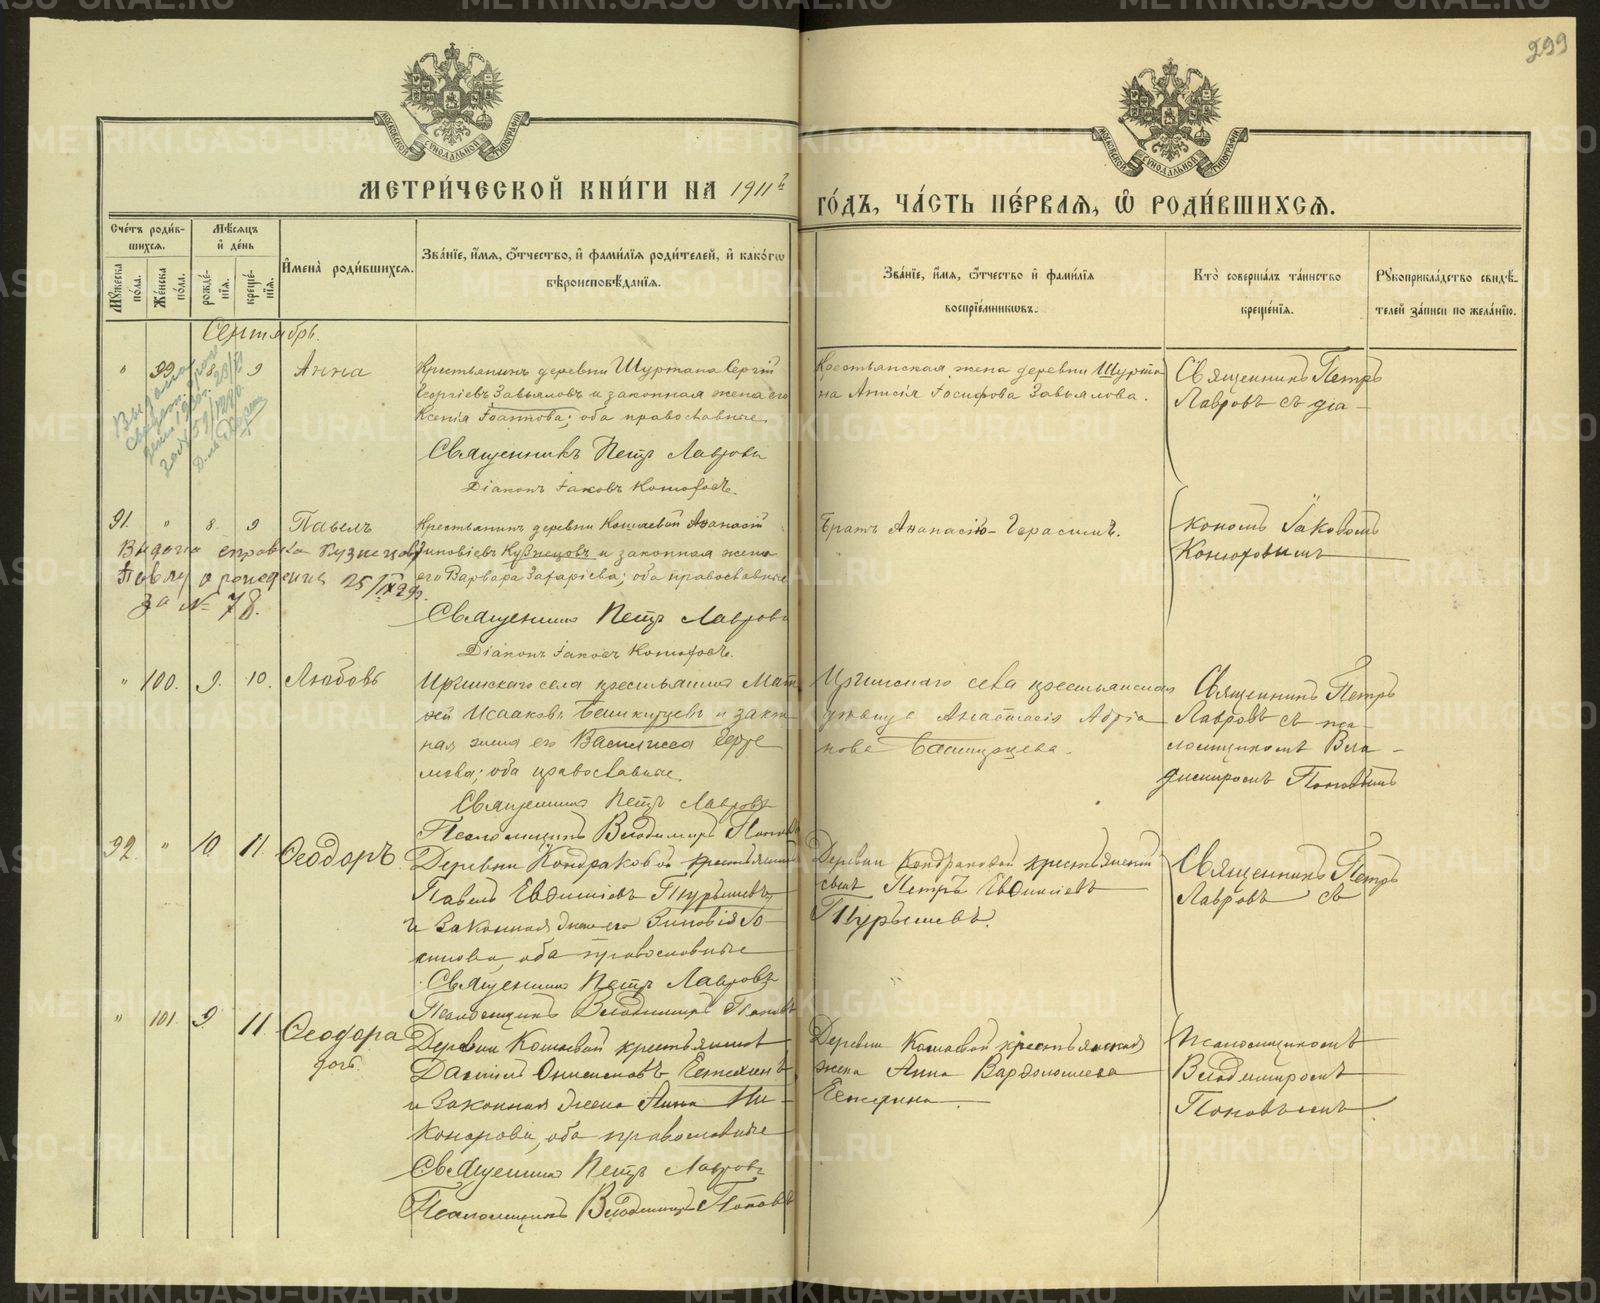 299
МОСКОВСКОЙ СУНОДАЛЬНОЙ ТИПОГРАФІИ
МОСКОВСКОЙ СУНОДАЛЬНОЙ ТИПОГРАФІИ
МЕТРИ́ЧЕСКОЙ КНИ́ГИ НА 1911 г.
ГО́ДЪ, ЧА́СТЬ ПЕ́РВАЯ, Ѡ҆ РОДИ́ВШИХСЯ.
Сче́тъ роди́вшихся.
Мꙋ́жеска по́ла.
Же́нска по́ла.
Мѣ́сяцъ и҆ де́нь
рожде́нїя.
креще́нїя.
И҆мена̀ роди́вшихся.
Зва́нїе, и҆́мя, ѻ҆́тчество, и҆ фами́лїя роди́телей, и҆ како́гѡ
вѣроисповѣ́данїя.
Зва́нїе, и҆́мя, ѻ҆́тчество и҆ фами́лїя
воспрїе́мникѡвъ.
Кто̀ соверша́лъ та́инство
креще́нїя.
Рꙋкоприкла́дство свидѣ́-
телей за́писи по жела́нїю.
Сентябрь.
" 99. 8. 9 Анна
Крестьянинъ деревни Шуртана Сергій
Георгіевъ Завьяловъ и законная жена его
Ксенія Іоаннова; оба православные.
Священникъ Петръ Лавровъ
Діаконъ Іаковъ
Крестьянская жена деревни Шурта-
на Анисія Іосифова Завьялова.
Священникъ Петръ
Лавровъ съ діа-
91. " 8. 9 Павелъ
Выдана справка Кузнецову
Павлу о рождении 25/IX 29
За № 78.
Крестьянинъ деревни Кошаевой Аѳанасій
Зиновіевъ Кузнецовъ и законная жена
его Варвара Захаріева; оба православные
Священникъ Петръ Лавровъ
Діаконъ Іаковъ
Братъ Аѳанасію - Герасимъ.
кономъ Іаковомъ
" 100. 9. 10. Любовь
Иргинскаго села крестьянинъ Мат-
ѳей Исааковъ Башкирцевъ и закон-
ная жена его Василисса
оба православные.
Священникъ Петръ Лавровъ
Псаломщикъ Владимиръ Поповъ
Иргинскаго села крестьянская
Анастасія Адріа-
нова Башкирцева.
Священникъ Петръ
Лавровъ съ пса-
ломщикомъ Вла-
димиромъ Поповымъ
92. " 10. 11. Ѳеодоръ
Деревни Кондраковой крестьянинъ
Павелъ Евѳиміевъ Турышевъ
и законная жена его Зиновія Іо-
оба православные
Священникъ Петръ Лавровъ
Псаломщикъ Владимиръ Поповъ
Деревни Кондраковой крестьянскій
сынъ Петръ Евѳиміевъ
Турышевъ.
Священникъ Петръ
Лавровъ съ
" 101. 9. 11 Ѳеодора
Деревни Кошаевой крестьянинъ
Даніилъ Онисимовъ
и законная жена Анна Ни-
конорова, оба православные
Священникъ Петръ Лавровъ
Псаломщикъ Владимиръ Поповъ
Деревни Кошаевой крестьянская
жена Анна Варѳоломеева
Псаломщикомъ
Владимиромъ
Поповымъ.
METRIKI.GASO-URAL.RU